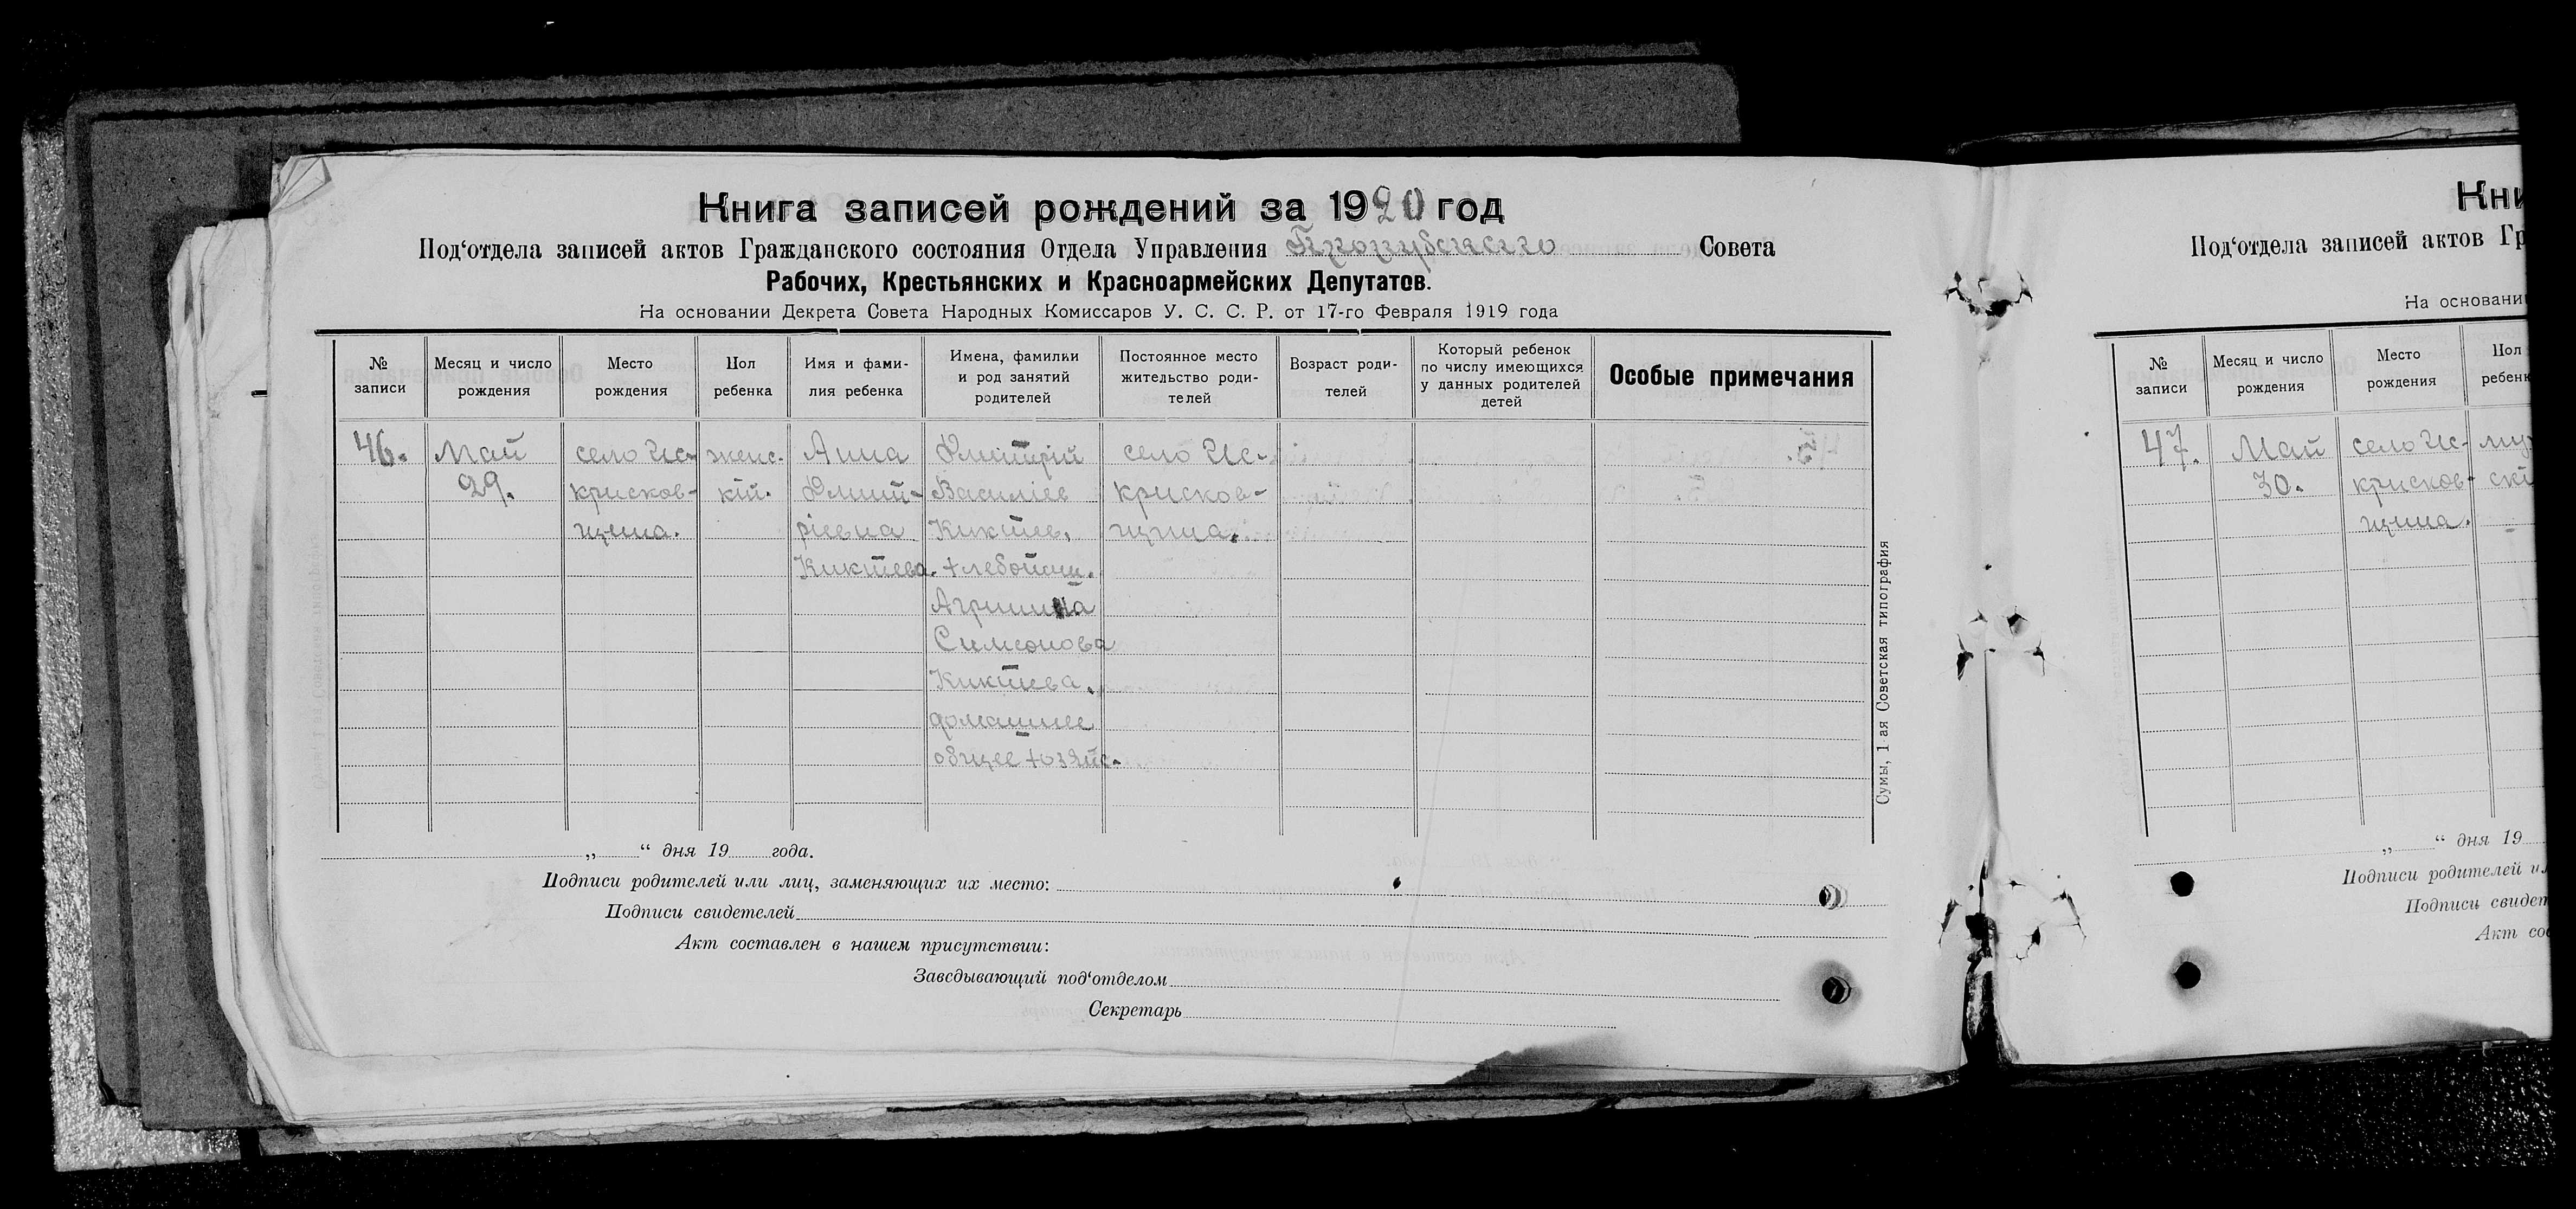 Книга записей рождений за 1920 год
Под‘отдела записей актов Гражданского состояния Отдела Управления Совета
Рабочих, Крестьянских и Красноармейских Депутатов.
На основании Декрета Совета Народных Комиссаров У. С. С. Р. от 17-го Февраля 1919 года
№ записи
Месяц и число рождения
Место рождения
Пол ребенка
Имя и фами-
лия ребенка
Имена, фамилии
и род занятий
родителей
Постоянное место
жительство роди-
телей
Возраст роди-
телей
Который ребенок
по числу имеющихся
у данных родителей
детей
Особые примечания
46.
Май
29.
село Ис-
крисков-
щина.
женс-
кій.
Анна
Дмит-
ріевна
Киктева.
Дмитрій
Василіев
Киктев,
хлебопаш.
Агрипина
Симеонова
Киктева,
домашнее
общее хозяйс.
село Ис-
крисков-
щина.
Сумы, 1-ая Советская типография
„ “ дня 19 года.
Подписи родителей или лиц, заменяющих их место:
Подписи свидетелей
Акт составлен в нашем присутствии:
Заведывающий под‘отделом
Секретарь
Кни
Под‘отдела записей актов Гр
На основани
№
записи
Месяц и число
рождения
Место
рождения
Пол
ребенк
47.
Май
30.
село Ис-
крисков-
щина.
муж
скі
„ “ дня 19
Подписи родителей и
Подписи свидет
Акт со